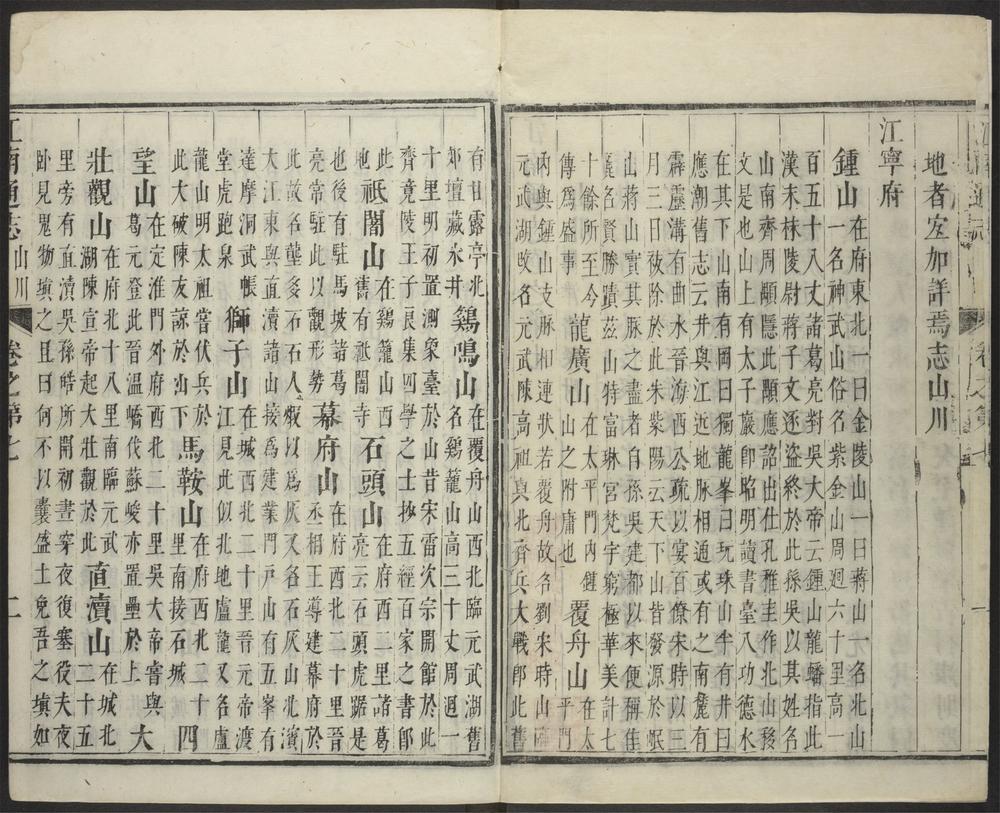 地者宜加詳焉志山川
江寧府
鍾山在府東北一曰金陵山一曰蔣山一名北山
一名神武山俗名紫金山周迴六十里高一
百五十八丈諸葛亮對吳大帝云鍾山龍蟠指此
漢末秣陵尉蔣子文逐盜終於此孫吳以其姓名
山南齊周顒隱此顒應詔出仕孔稚圭作北山移
文是也山上有太子巖即昭明讀書臺八功德水
在其下山南有岡曰獨龍峯曰玩珠山半有井曰
應潮舊志云井與江近地脉相通或有之南麓有
霹靂溝有曲水晉海西公疏以宴百僚宋時以三
月三日祓除於此朱紫陽云天下山皆發源於岷
山蔣山實其脉之盡者自孫吳建都以來便稱佳
麗名賢勝蹟茲山特富琳宮梵宇窮極華美計七
十餘所至今傳爲盛事 龍廣山在太平門內鍾山山之附庸也 覆舟山在太平門
內與鍾山支脉相連狀若覆舟故名劉宋時山臨
元武湖改名元武陳高祖與北齊兵大戰即此舊
有甘露亭北郊壇藏氷井 雞鳴山在覆舟山西北臨元武湖舊名雞籠山高三十丈周迴一
十里明初置測象臺於山昔宋雷次宗開館於此
齊竟陵王子良集四學之士抄五經百家之書即
此地 祗闍山在雞籠山西舊有祗闍寺 石頭山在府西二里諸葛亮云石頭虎踞是
也後有駐馬坡諸葛亮常駐此以觀形勢 幕府山在府西北二十里晉丞相王導建幕府於
此故名壟多石石人煅以爲灰又名石灰山北濱
大江東與直瀆諸山接爲建業門戶山有五峯有
達摩洞武帳堂虎跑泉 獅子山在城西北二十里晉元帝渡江見此似北地盧龍又名盧
龍山明太祖嘗伏兵於此大破陳友諒於山下 馬鞍山在府西北二十里南接石城 四
望山在定淮門外府西北二十里吳大帝嘗與葛元登此晉溫嶠伐蘇峻亦置壘於上 大
壯觀山在府北十八里南臨元武湖陳宣帝起大壯觀於此 直瀆山在城北二十五
里旁有直瀆吳孫皓所開初晝穿夜復塞役夫夜
臥見鬼物填之且曰何不以囊盛土免吾之填如
江南通志 山川 卷之第七 二